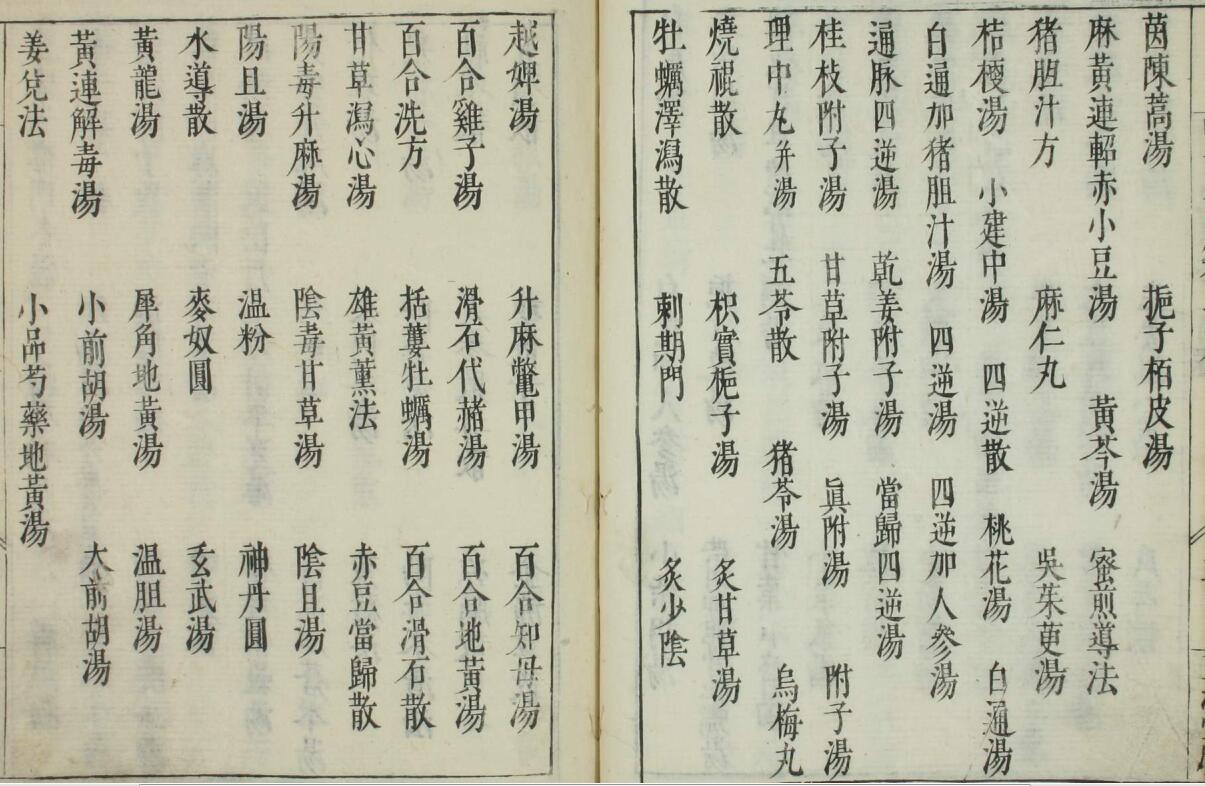 茵陳蒿湯　梔子栢皮湯
麻黃連軺赤小豆湯　黃芩湯　蜜煎導法
猪胆汁方　麻仁丸　吳茱萸湯
桔梗湯　小建中湯　四逆散　桃花湯　白通湯
白通加猪胆汁湯　四逆湯　四逆加人參湯
通脉四逆湯　乾姜附子湯　當歸四逆湯
桂枝附子湯　甘草附子湯　眞附湯　附子湯
理中丸并湯　五苓散　猪苓湯　烏梅丸
燒裩散　枳實梔子湯　炙甘草湯
牡蠣澤瀉散　刺期門　炙少陰
越婢湯　升麻鼈甲湯　百合知母湯
百合雞子湯　滑石代赭湯　百合地黃湯
百合洗方　括蔞牡蠣湯　百合滑石散
甘草瀉心湯　雄黃薰法　赤豆當歸散
陽毒升麻湯　陰毒甘草湯　陰旦湯
陽旦湯　温粉　神丹圓
水導散　麥奴圓　玄武湯
黃龍湯　犀角地黃湯　温胆湯
黃連解毒湯　小前胡湯　大前胡湯
姜兌法　小品芍藥地黃湯